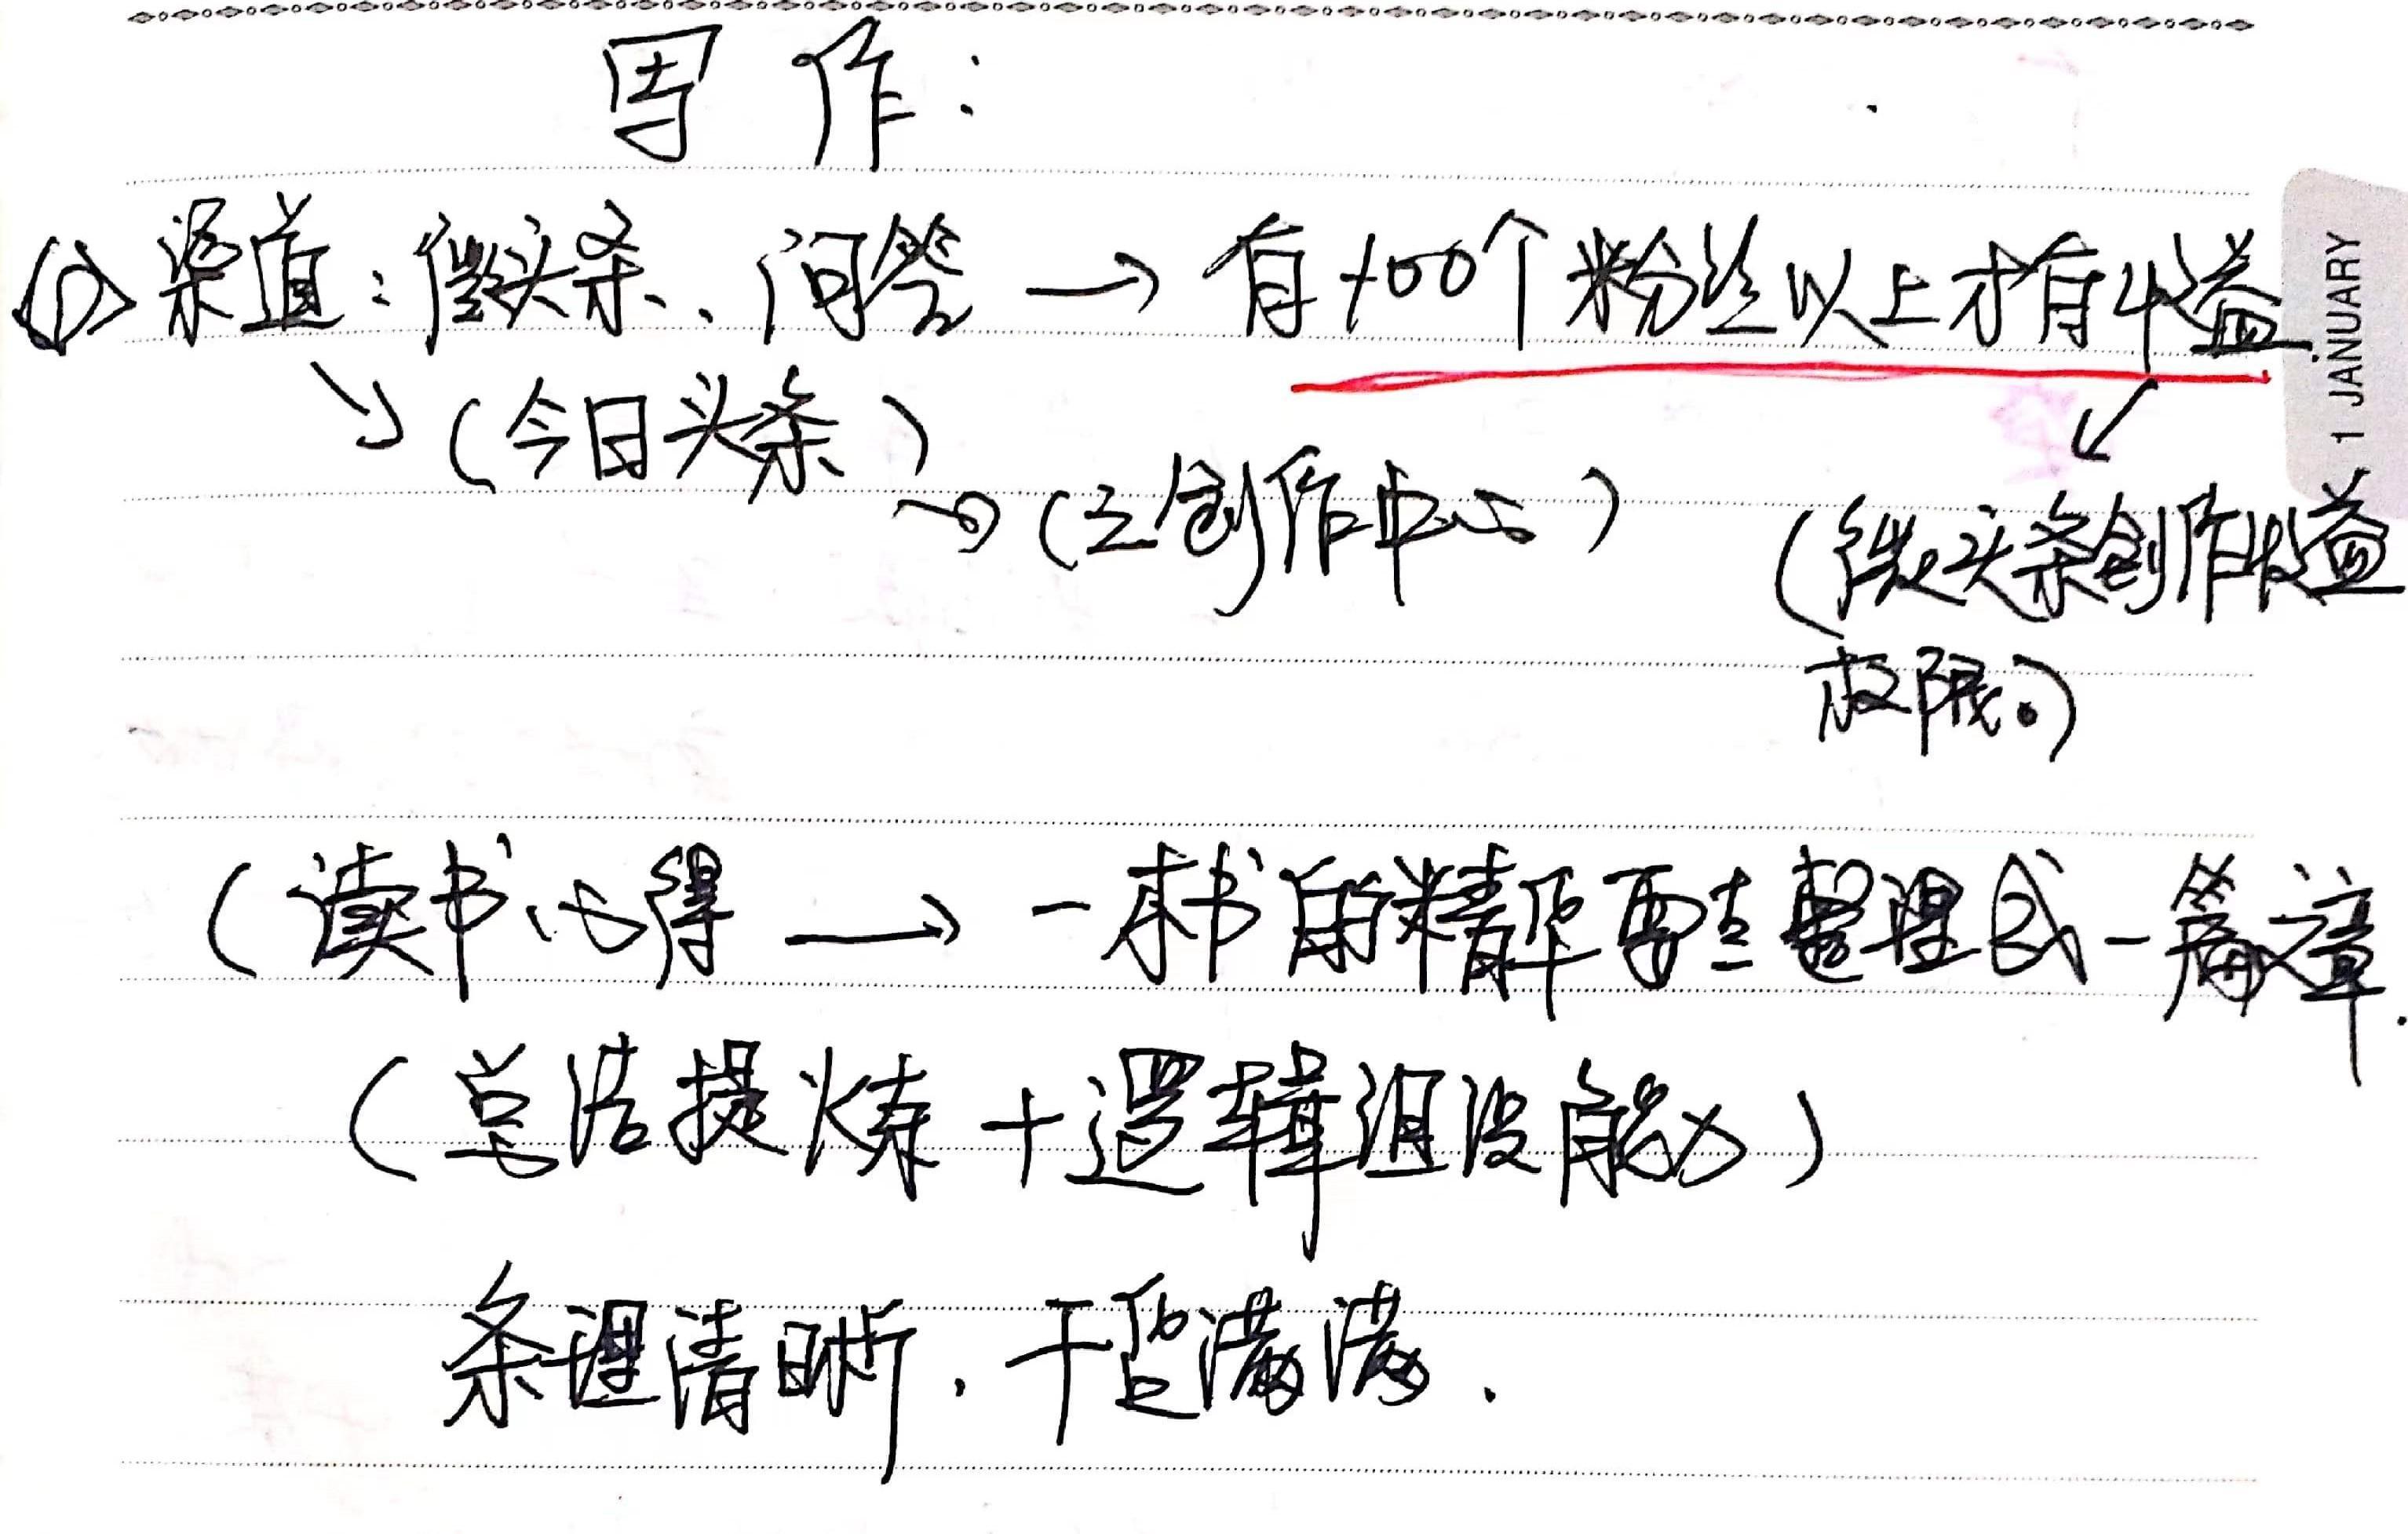 写作：
(1) 渠道：微头条、问答 → 有100个粉丝以上才有收益
↘ (今日头条)
→ (创作中心)
(微头条创作收益
权限。)
(读书心得 → 一本书的精华要点整理成一篇文章.
(总结提炼 + 逻辑组织能力)
条理清晰，干货满满.
1 JANUARY